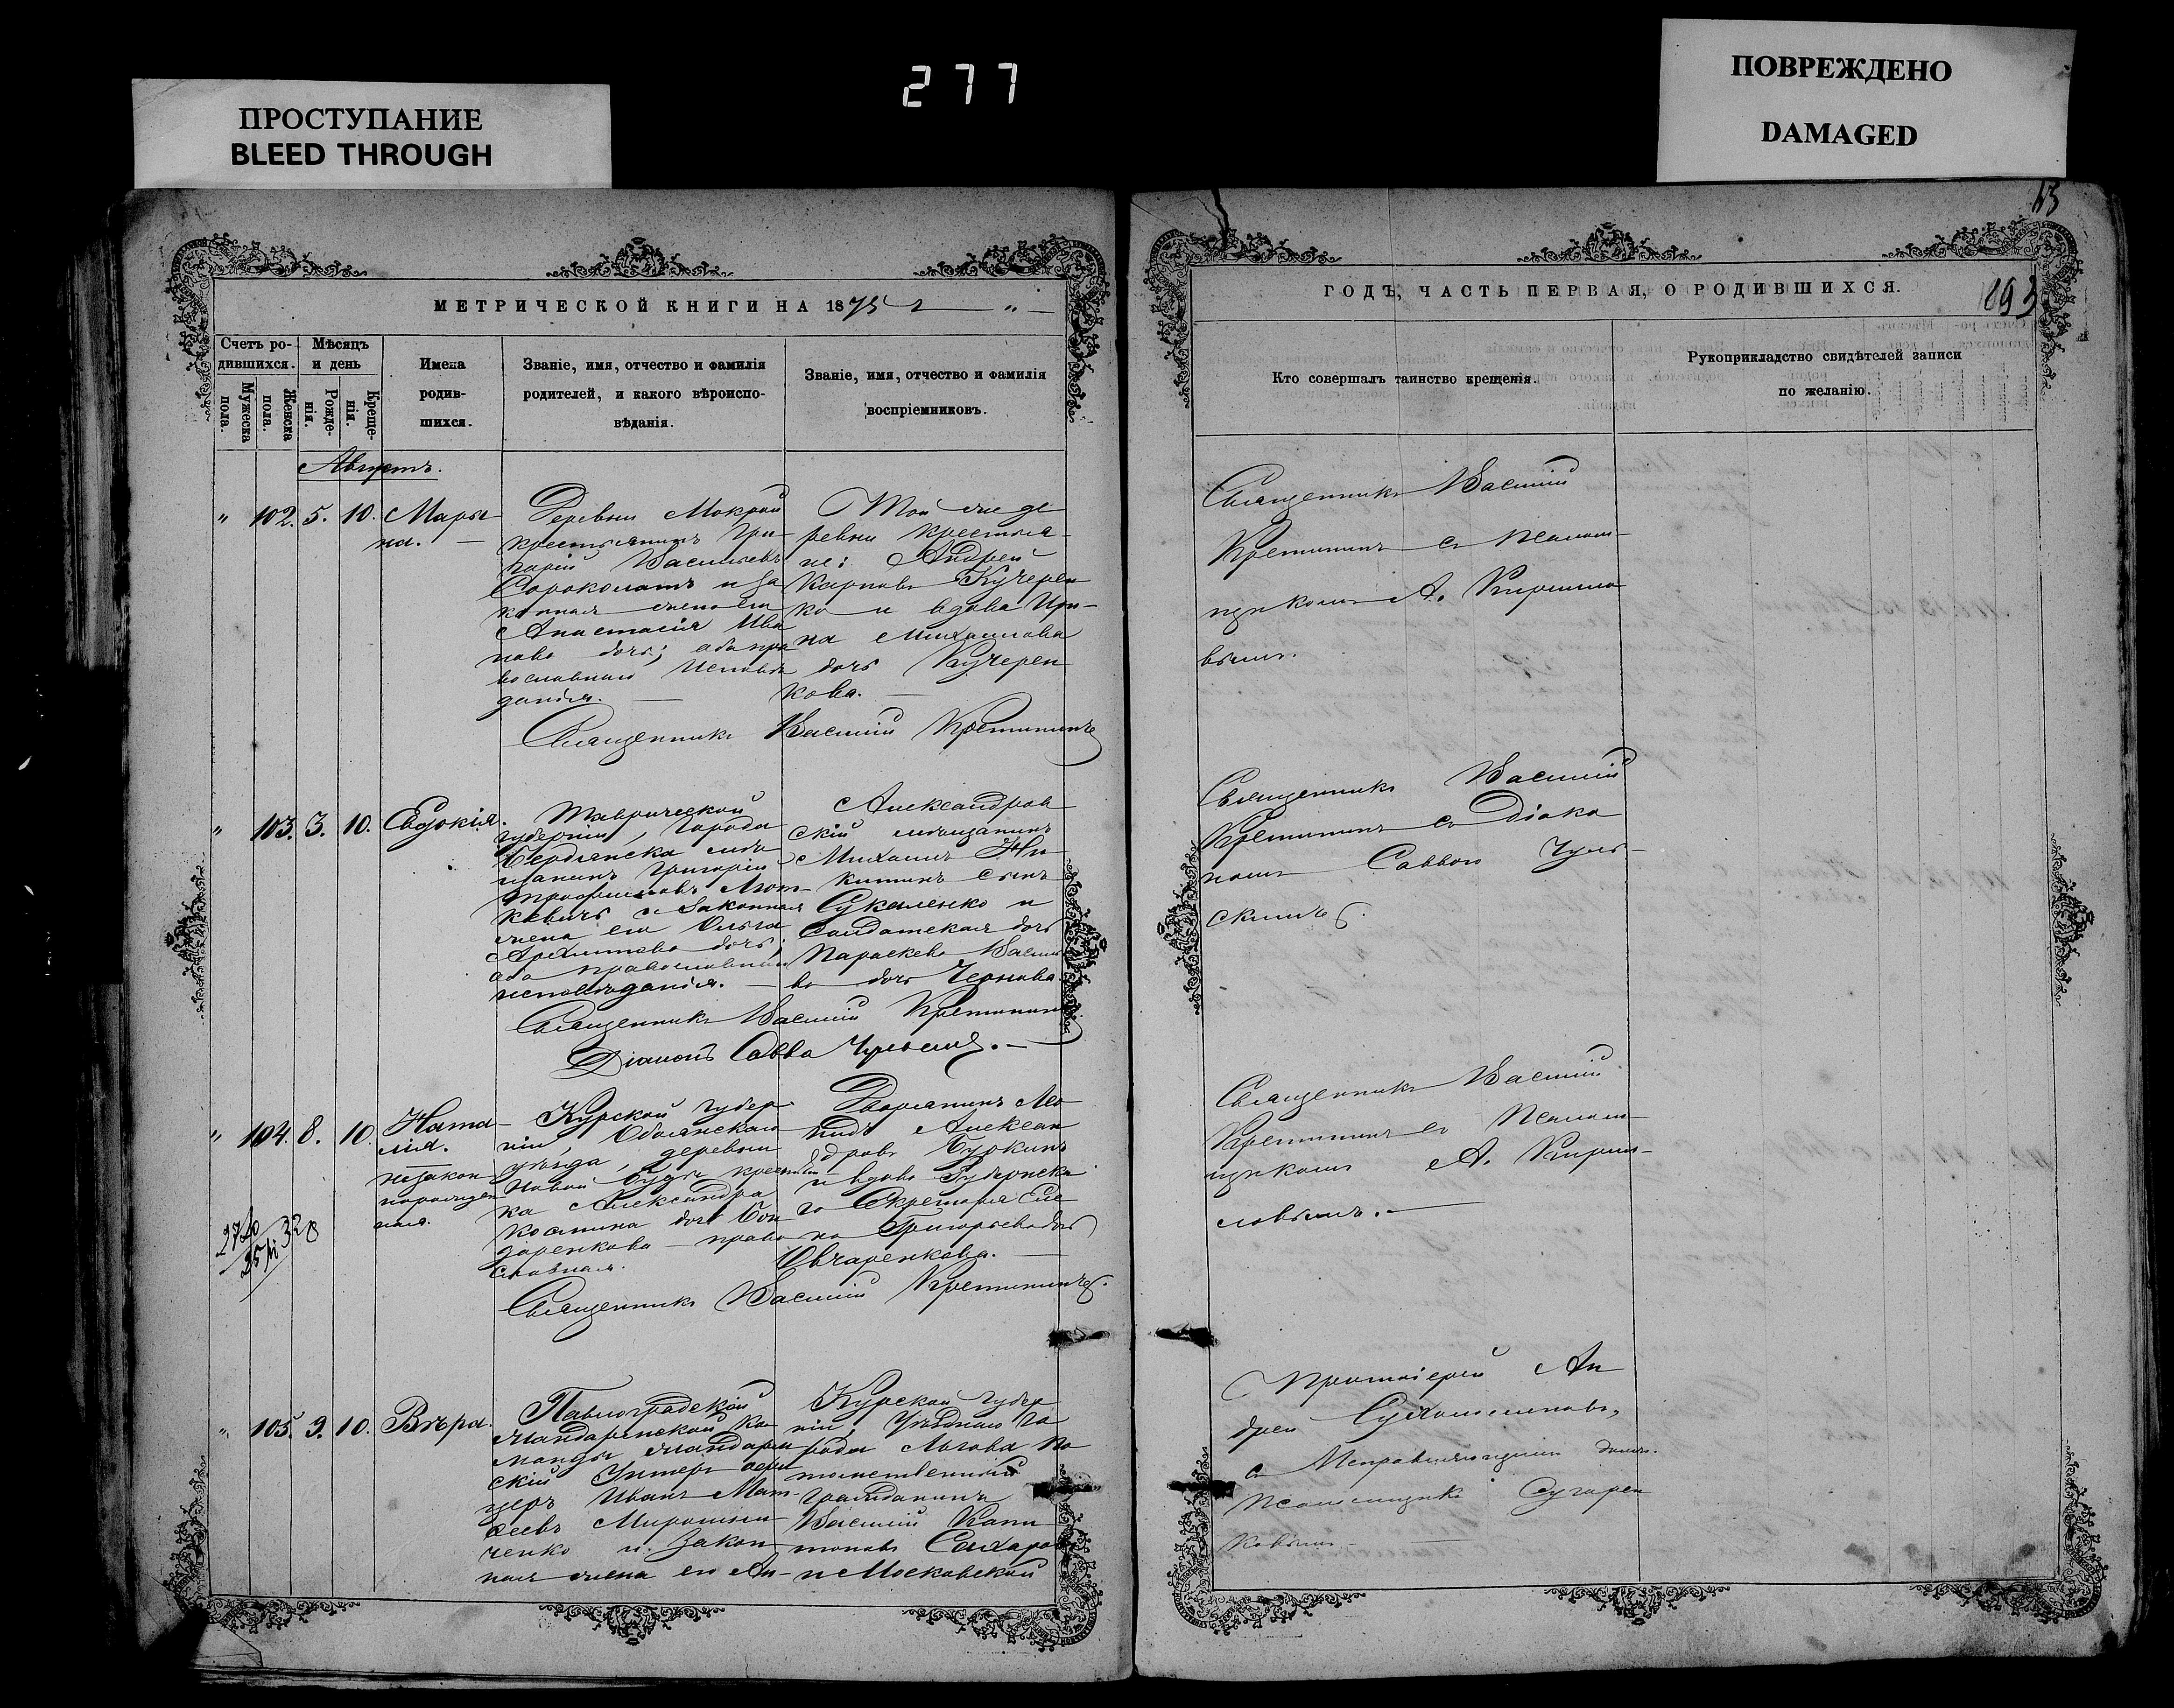 277
ПРОСТУПАНИЕ
BLEED THROUGH
ПОВРЕЖДЕНО
DAMAGED
МЕТРИЧЕСКОЙ КНИГИ НА 1875
Счетъ ро-
дившихся.
Мужеска
пола.
Женска
пола.
Мѣсяцъ
и день
Рожде-
нія.
Креще-
нія.
Имена
родив-
шихся.
Званіе, имя, отчество и фамилія
родителей, и какого вѣроиспо-
вѣданія.
Званіе, имя, отчество и фамилія
воспріемниковъ.
Августъ.
" 102. 5. 10. Мари
на.
Деревни Мокрой
крестьянинъ Гри
горій Васильевъ
Сороколатъ и за
конная жена его
Анастасія Ива
нова дочь; оба пра
вославнаго исповѣ
данія.
Той же де
ревни крестья
не: Андрей
Карповъ Кучерен
ко и вдова Ири-
на Михаилова
дочь Кучерен
кова.
Священникъ Василій Кретининъ
" 103. 3. 10. Евдокія.
Таврической
губерніи, города
Бердянска мѣ
щанинъ Григорій
Трофимовъ
и законная
жена его Ольга
дочь;
оба православнаго
исповѣданія.
Александров
скій мѣщанинъ
Михаилъ Ни
китинъ сынъ
Сукаленко и
Солдатская дочь
Параскева Васильє
ва дочь Чернова.
Священникъ Василій Кретининъ
Діаконъ Савва Чульскій.
" 104. 8. 10. Ната
лія.
незакон
норожден
ная.
Курской губер
ніи, Обоянскаго
уѣзда, деревни
крестьян
ка Александра
Костина дочь Бон
даренкова православная.
Дворянинъ Лео
нидъ Алексан
дровъ Буркинъ
и вдова Губернска
го Секретаря Еле
на Григорьева дочь
Овчаренкова.
Священникъ Василій Кретининъ.
" 105. 9. 10. Вѣра.
Павлоградской
жандармской ко
манды жандарм
скій Унтеръ офи
церъ Иванъ Мат
сеевъ Мирошни
ченко и закон
ная жена его Ан-
Курской губер
ніи, Уѣзднаго го
рода Льгова по
томственный
гражданинъ
Василій Капи
тоновъ Сахаровъ
и Московской
ГОДЪ, ЧАСТЬ ПЕРВАЯ, О РОДИВШИХСЯ.
Кто совершалъ таинство крещенія.
Рукоприкладство свидѣтелей записи
по желанію.
Священникъ Василій
Кретининъ съ псалом-
щикомъ А. Кирило
вымъ.
Священникъ Василій
Кретининъ съ Діако
номъ Саввою Чуль-
скимъ.
Священникъ Василій
Кретининъ съ Псалом-
щикомъ А. Кирил-
ловымъ.
Протоіерей Ан
дрей Сухомлиновъ,
съ Исправляющимъ долж.
псаломщика Сухарен
ковымъ